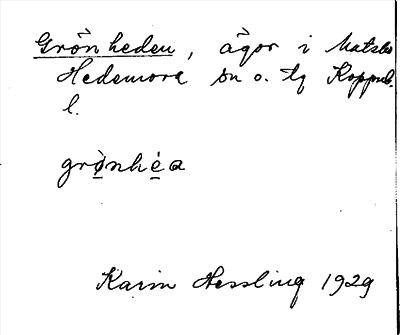 Grönheden, ägor i Matsbo
Hedemora sn o. tg Kopparb.
l.
grø̀nhéa
Karin Hessling 1929